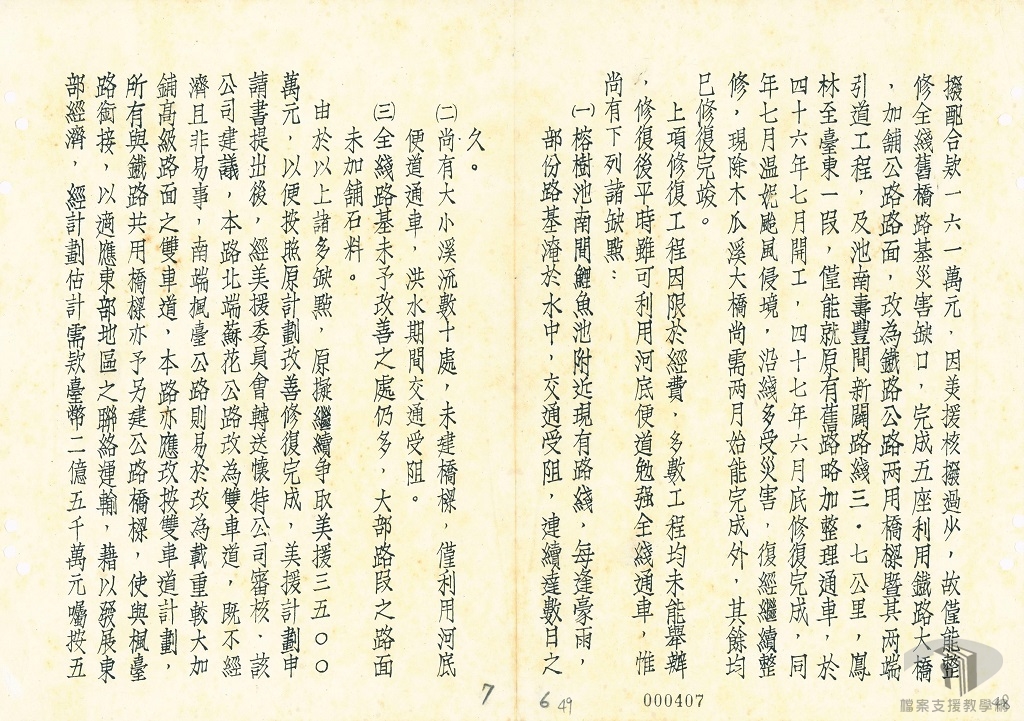 撥配合款一六一萬元．因美援核撥過少，故僅能整
修全綫舊橋路基災害缺口，完成五座利用鐵路大橋
，加舖公路路面，改為鐵路公路兩用橋樑暨其兩端
引道工程，及池南壽豐間新闢路綫三．七公里，鳳
林至臺東一段，僅能就原有舊路略加整理通車，於
四十六年七月開工，四十七年六月底修復完成，同
年七月溫妮颱風侵境，沿綫多受災害，復經繼續整
修，現除木瓜溪大橋尚需兩月始能完成外，其餘均
已修復完竣。
上項修復工程因限於經費，多數工程均未能舉辦
，修復後平時雖可利用河底便道勉强全綫通車，惟
尚有下列諸缺點：
㈠榕樹池南間鯉魚池附近現有路綫，每逢豪雨，
部份路基淹於水中，交通受阻，連續達數日之
久。
㈡尚有大小溪流數十處，未建橋樑，僅利用河底
便道通車，洪水期間交通受阻。
㈢全綫路基未予改善之處仍多，大部路段之路面
未加舖石料。
由於以上諸多缺點，原擬繼續争取美援三五００
萬元，以便按照原計劃改善修復完成，美援計劃申
請書提出後，經美援委員會轉送懷特公司審核．該
公司建議，本路北端蘇花公路改為雙車道，既不經
濟且非易事，南端楓臺公路則易於改為載重較大加
舖高級路面之雙車道，本路亦應改按雙車道計劃，
所有與鐵路共用橋樑亦予另建公路橋樑，使與楓臺
路銜接，以適應東部地區之聯絡運輸，藉以發展東
部經濟，經計劃估計需款臺幣二億五千萬元囑按五
7
6
49
000407
48
檔案支援教學網